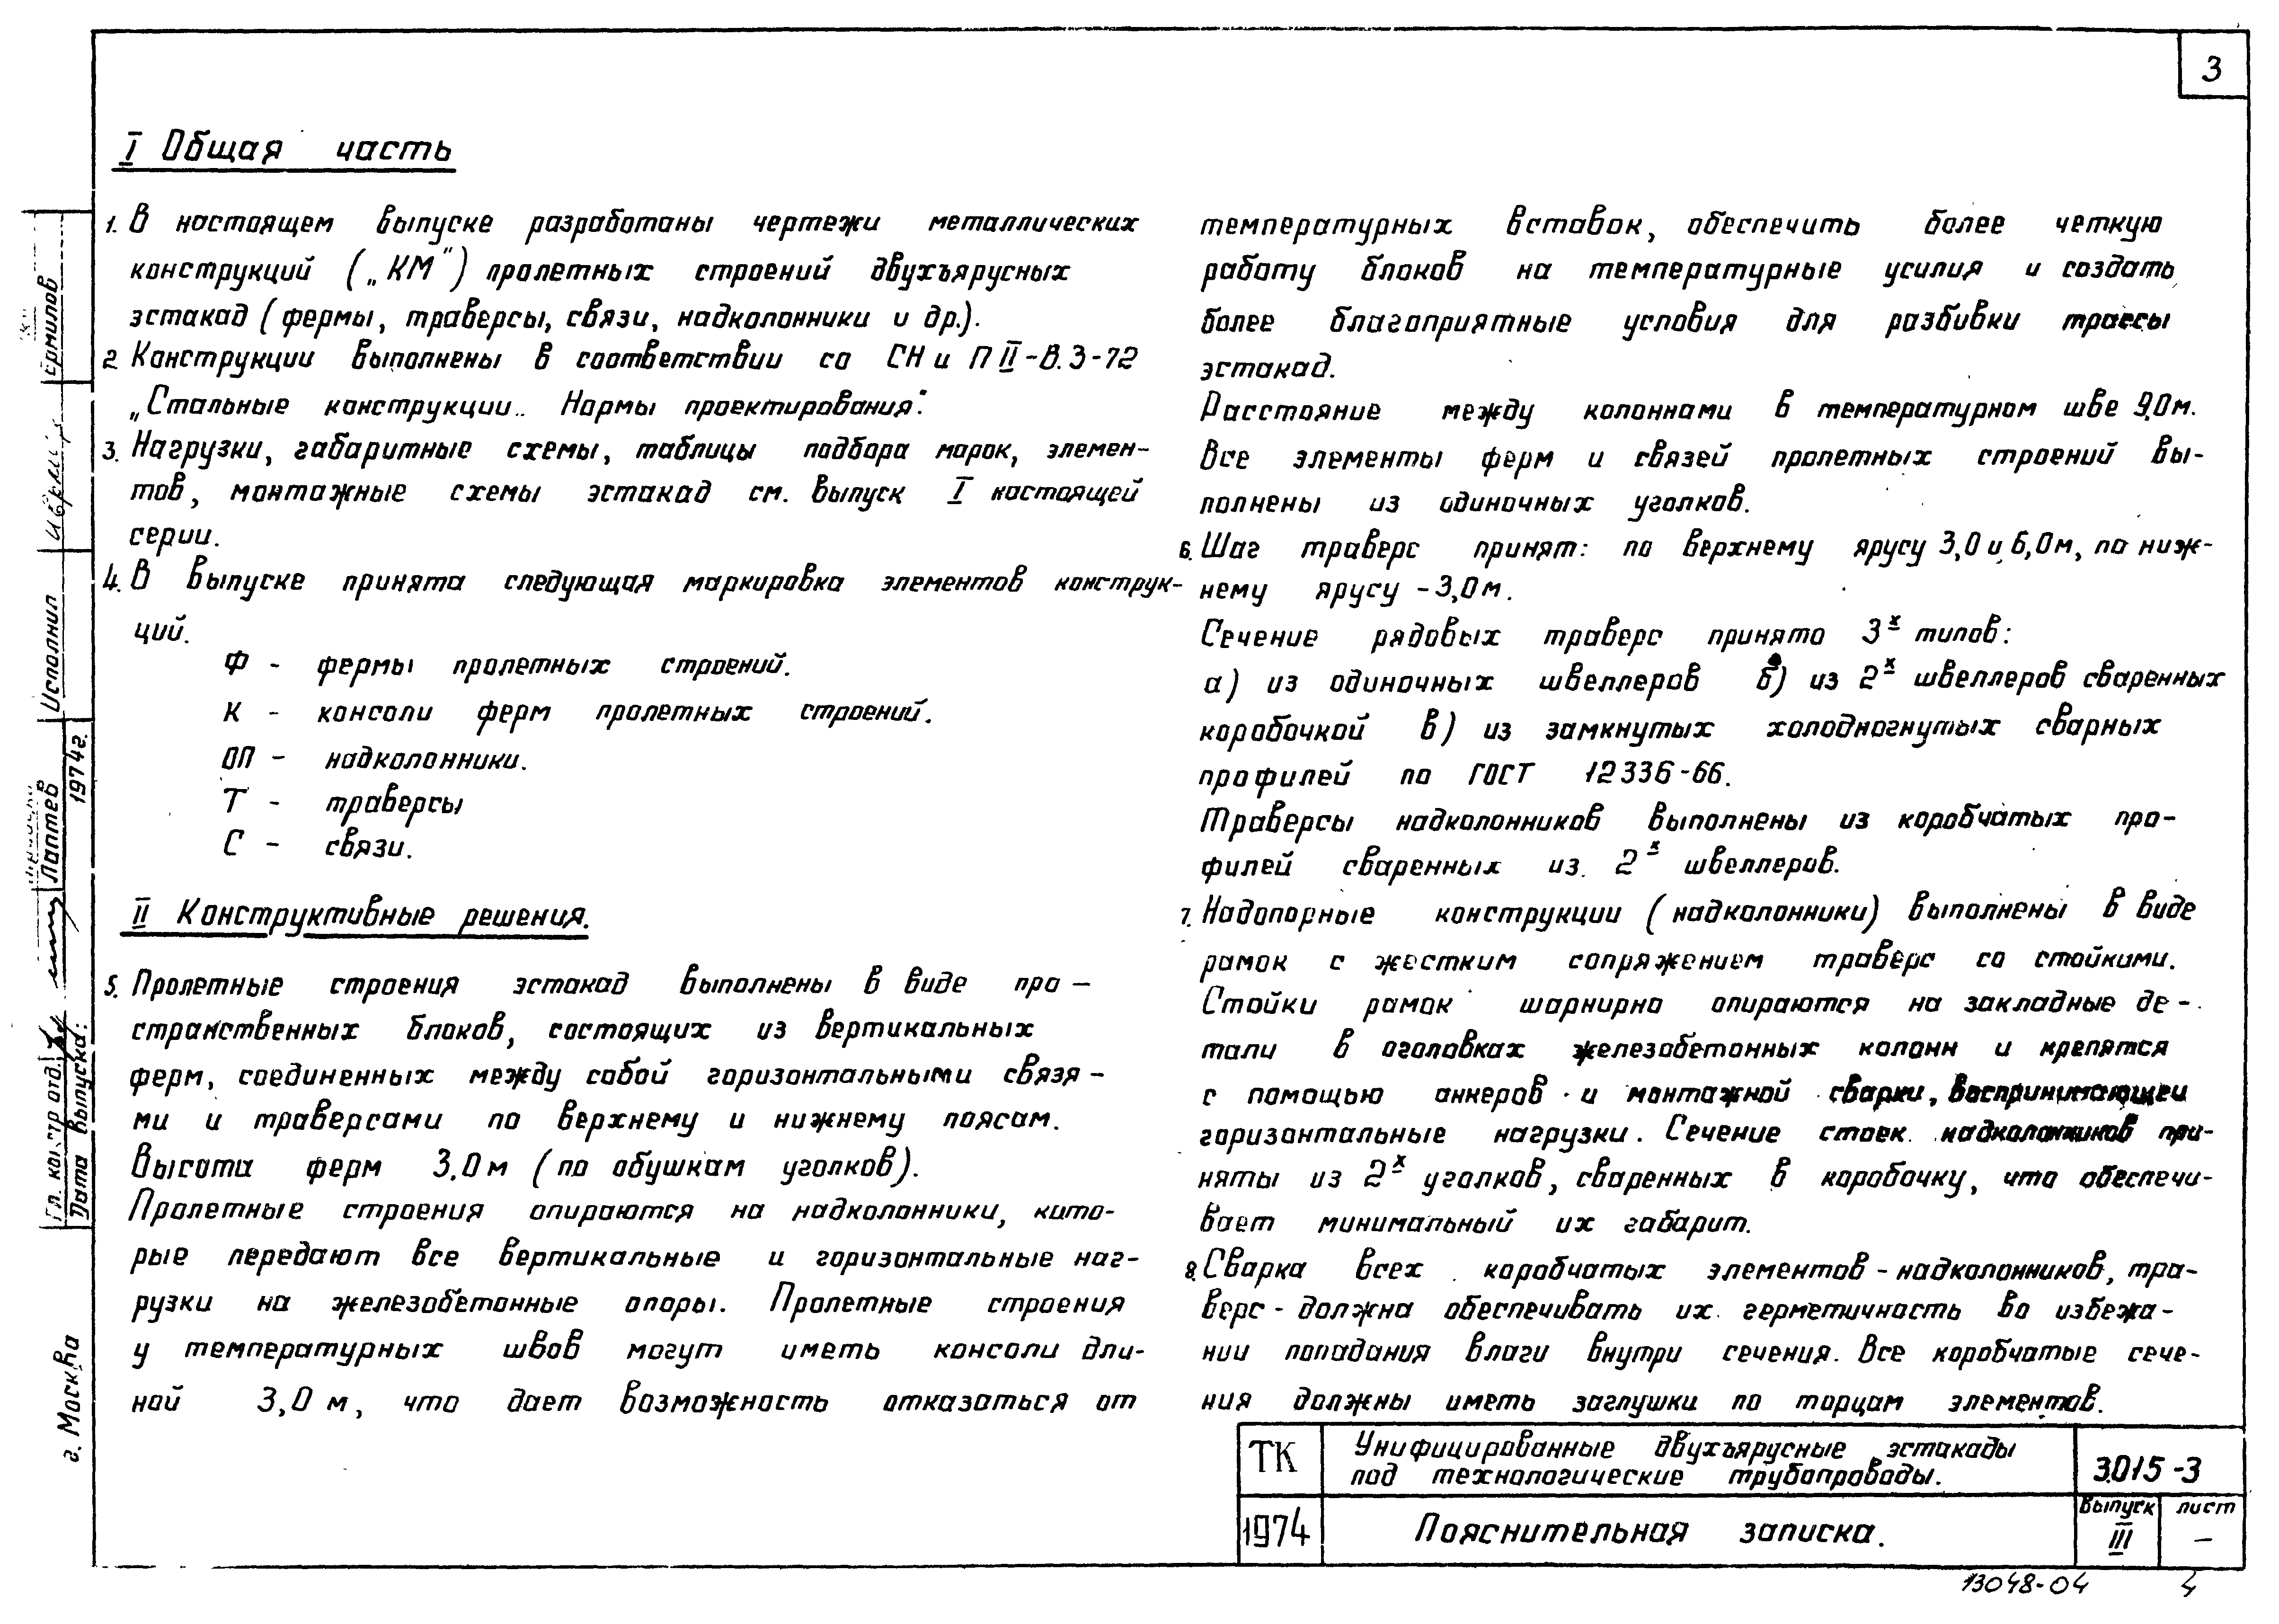 3
I Общая часть
1. В настоящем выпуске разработаны чертежи металлических
конструкций („КМ") пролетных строений двухъярусных
эстакад (фермы, траверсы, связи, надколонники и др.).
2. Конструкции выполнены в соответствии со СН и П II-В.3-72
„Стальные конструкции. Нормы проектирования".
3. Нагрузки, габаритные схемы, таблицы подбора марок, элемен-
тов, монтажные схемы эстакад см. выпуск I настоящей
серии.
4. В выпуске принята следующая маркировка элементов конструк-
ций.
Ф - фермы пролетных строений.
К - консоли ферм пролетных строений.
ОП - надколонники.
Т - траверсы
С - связи.
II Конструктивные решения.
5. Пролетные строения эстакад выполнены в виде про-
странственных блоков, состоящих из вертикальных
ферм, соединенных между собой горизонтальными связя-
ми и траверсами по верхнему и нижнему поясам.
Высота ферм 3.0м (по обушкам уголков).
Пролетные строения опираются на надколонники, кото-
рые передают все вертикальные и горизонтальные наг-
рузки на железобетонные опоры. Пролетные строения
у температурных швов могут иметь консоли дли-
ной 3,0 м, что дает возможность отказаться от
температурных вставок, обеспечить более четкую
работу блоков на температурные усилия и создать
более благоприятные условия для разбивки трассы
эстакад.
Расстояние между колоннами в температурном шве 9.0м.
Все элементы ферм и связей пролетных строений вы-
полнены из одиночных уголков.
6. Шаг траверс принят: по верхнему ярусу 3,0 и 6,0м, по ниж-
нему ярусу -3,0м.
Сечение рядовых траверс принято 3х типов:
а) из одиночных швеллеров б) из 2х швеллеров сваренных
коробочкой в) из замкнутых холодногнутых сварных
профилей по ГОСТ 12336-66.
Траверсы надколонников выполнены из коробчатых про-
филей сваренных из 2х швеллеров.
7. Надопорные конструкции (надколонники) выполнены в виде
рамок с жестким сопряжением траверс со стойками.
Стойки рамок шарнирно опираются на закладные де-
тали в оголовках железобетонных колонн и крепятся
с помощью анкеров и монтажной сварки, воспринимающей
горизонтальные нагрузки. Сечение стоек надколонников при-
няты из 2х уголков, сваренных в коробочку, что обеспечи-
вает минимальный их габарит.
8. Сварка всех коробчатых элементов - надколонников, тра-
верс - должна обеспечивать их герметичность во избежа-
нии попадания влаги внутри сечения. Все коробчатые сече-
ния должны иметь заглушки по торцам элементов.
ТК
Унифицированные двухъярусные эстакады
под технологические трубопроводы.
3.015-3
1974
Пояснительная записка.
выпуск
III
лист
-
13048-04
4
Ермилов
Исполнил
Лаптев
1974г.
Гл. констр отд.
Дата выпуска:
г. Москва